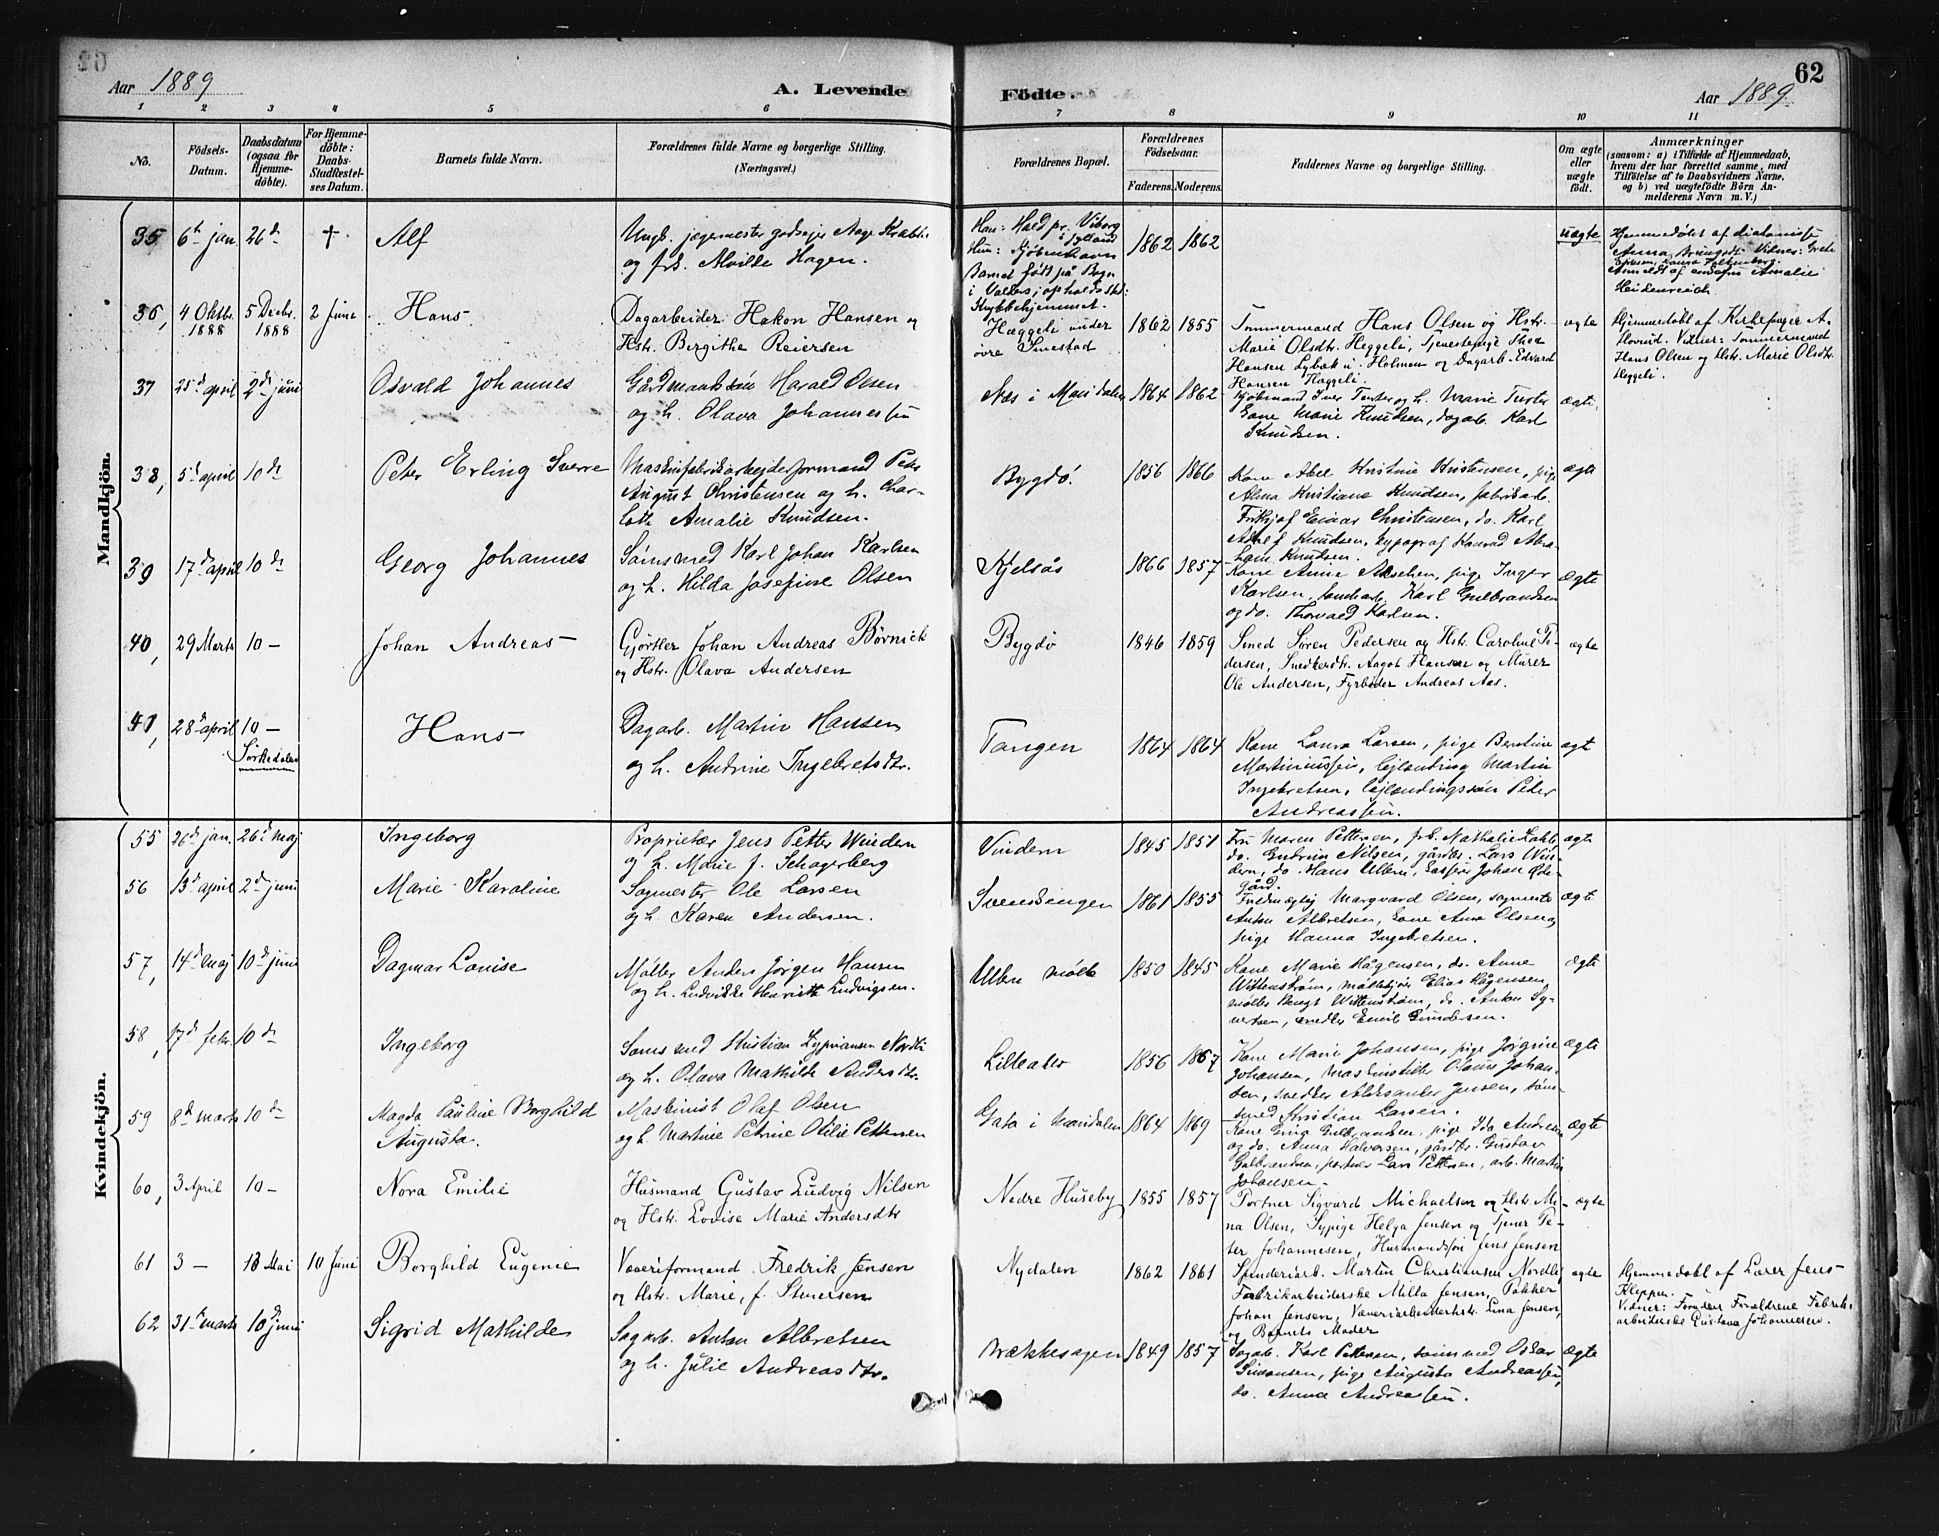 62
Aar 1889
A. Levende Födte.
Aar 1889.
1 2 3 4 5 6 7 8 9 10 11
No.
Födsels-Datum.
Daabsdatum (ogsaa for Hjemme-döbte).
For Hjemme-döbte: Daabs-Stadfæstel-ses Datum.
Barnets fulde Navn.
Forældrenes fulde Navne og borgerlige Stilling.
(Næringsvei.)
Forældrenes Bopæl.
Forældrenes Födselsaar.
Faderens. Moderens.
Faddernes Navne og borgerlige Stilling.
Om ægte eller uægte födt.
Anmærkninger
(saasom: a) i Tilfælde af Hjemmedaab,
hvem der har forrettet samme, med
Tilföielse af to Daabsvidners Navne,
og b) ved uægtefödte Börn An-
melderens Navn m. V.)
Mandkjön.
35 6te jan. 26de † Alf
Ungk. jægermester godsejer Aage Krabbe
og frk. Alvilde Hagen.
Han: Hald pr. Viborg
i Jylland
Hun: Kjøbenhavn
Barnet født på
1862 1862
uægte
Hjemmedøbt af diakonisse
Anmeldt af Amalie
Heidenreich
36, 4 Oktbr. 1888 5 Decbr. 1888 2 Juni Hans
Dagarbeider Hakon Hansen og
Hstr. Bergithe Reiersen
Heggeli under
øvre Smestad
1862 1855
Tømmermand Hans Olsen og Hstr.
Marie Olsdtr. Heggeli, Tjenestepige Thea
Hansen Lybæk u. Holmen og Dagarb. Edvard
Hansen Heggeli.
ægte
Hjemmedøbt af Kirkesanger A.
Hovind. Vidner: Tømmermand
Hans Olsen og Hstr. Marie Olsdtr.
Heggeli.
37 25de april 2den juni Osvald Johannes
Gårdmandssøn Harald Olsen
og h. Olava Johannessen
Næs i Maridalen 1864 1862
kone Marie Knudsen, dagarb. Karl
Knudsen.
ægte
38, 5te april 10de Peter Erling Sverre
Maskinfabrikarbejderformand Peter
August Christensen og h. Char-
lotte Amalie Knudsen.
Bygdø. 1856 1866
Kone Abel Kristine Kristensen, pige
Alma Kristiane Knudsen, fabrikarb.
Fritjof Einar Christensen, do. Karl
Adolf Knudsen, typograf Konrad Abra-
ham Knudsen.
ægte
39 17de april 10de Georg Johannes
Sømsmed Karl Johan Karlsen
og h. Hilda Josefine Olsen
Kjelsås 1866 1857
Kone Anne Akselsen, pige Inger
Karlsen, landarb. Karl Gulbrandsen
og do. Thorvald Karlsen.
Ægte
40, 29 Marts 10 — Johan Andreas
Gjørtler Johan Andreas Börnick
og Hstr. Olava Andersen
Bygdø 1846 1859
Smed Søren Pedersen og Hstr. Caroline Pe-
dersen, Snedkerdtr. Aagot Hansen og Murer
Ole Andersen, Fyrbøder Andreas Aas.
ægte
41, 28de april 10 — Sørkedalen Hans
Dagarb. Martin Hansen
og h. Andrine Ingebretsdtr.
Tangen 1864 1864
Kone Laura Larsen, pige Berntine
Martiniussen, lejlænding Martin
Ingebretsen, lejlændingssøn Peder
Andreassen.
ægte
Kvindekjön.
55 26de jan. 26de maj Ingeborg
Proprietær Jens Petter Windern
og h. Marie f. Schagerberg
Vindern 1845 1851
Fru Maren Pettersen, frk. Nathalie
do. Gudrun Nilsen, gårdbr. Lars Win-
dern, do. Hans Ullern, kasserer Johan Øde-
gård.
ægte
56 13de april 2den juni Marie Karoline
Sagmester Ole Larsen
og h. Karen Andersen.
Svensenengen 1861 1855
Margvard Olsen, sagmester
Anton Albretsen, kone Anna Olsen og
pige Hanna Ingebretsen.
ægte
57, 14de maj 10de juni Dagmar Louise
Møller Anders Jörgen Hansen
og h. Ludvikke Henriette Ludvigsen.
Ullern mølle 1850 1845
Kone Marie Hågensen, do. Anna
Wittenstrøm, møllebygger Elias Hågensen,
møller Bengt Wittenstrøm, do. Anton Sy-
vertsen, snedker Emil Gundersen.
Ægte
58, 17de febr. 10de Ingeborg
Sømsmed Kristian Syprianssen Nordli
og h. Olava Mathilde Andersdtr.
Lilleaker 1856 1857
Kone Marie Johansen, pige Jørgine
Johansen, maskinstiller Olaus Johan-
sen, snedker Aleksander Jensen, søm-
smed Kristian Larsen.
Ægte
59 8de marts 10de Magda Pauline Borghild
Augusta.
Maskinist Olaf Olsen
og h. Martine Petrine Otilie Pettersen
i Maridalen 1864 1869
Kone Gina Gulbrandsen, pige Ida Andresen
og do. Anna Halvorsen, gårdbr. Gustav
Gulbrandsen, portner Lars Pettersen, arb. Martin
Johansen.
ægte
60, 3 April 10 — Nora Emilie
Husmand Gustav Ludvig Nilsen
og Hstr. Lovise Marie Andersdtr
Nedre Huseby 1855 1857
Portner Sigvard Michaelsen og Hstr. Mi-
na Olsen, Sypige Helga Jensen og Tjener Pe-
ter Johannesen, Husmandssøn Jens Jensen
ægte
61 3 — 13 Mai 10 Juni Borghild Eugenie
Væveriformand Fredrik Jensen
og Hstr. Marie, f. Stenersen
Nydalen 1862 1861
Spinderiarb. Martin Christiansen Nordlej
Fabrikarbeiderske Milla Jensen, Pakker
Johan Jensen, Væveriarbeiderhstr. Lina Jensen,
og Barnets Moder
ægte
Hjemmedøbt af Lærer Jens
Kleppen.
Vidner: Foruden Forældrene Fabrik-
arbeiderske Gustava Johannesen.
62 31te marts 10de juni Sigrid Mathilde
Sagarb. Anton Albretsen
og h. Julie Andreasdtr.
Brækkesagen 1849 1857
Sagarb. Karl Pettersen, sømsmed Oskar
Simonsen, pige Augusta Andreassen,
do. Anna Andreassen.
Ægte